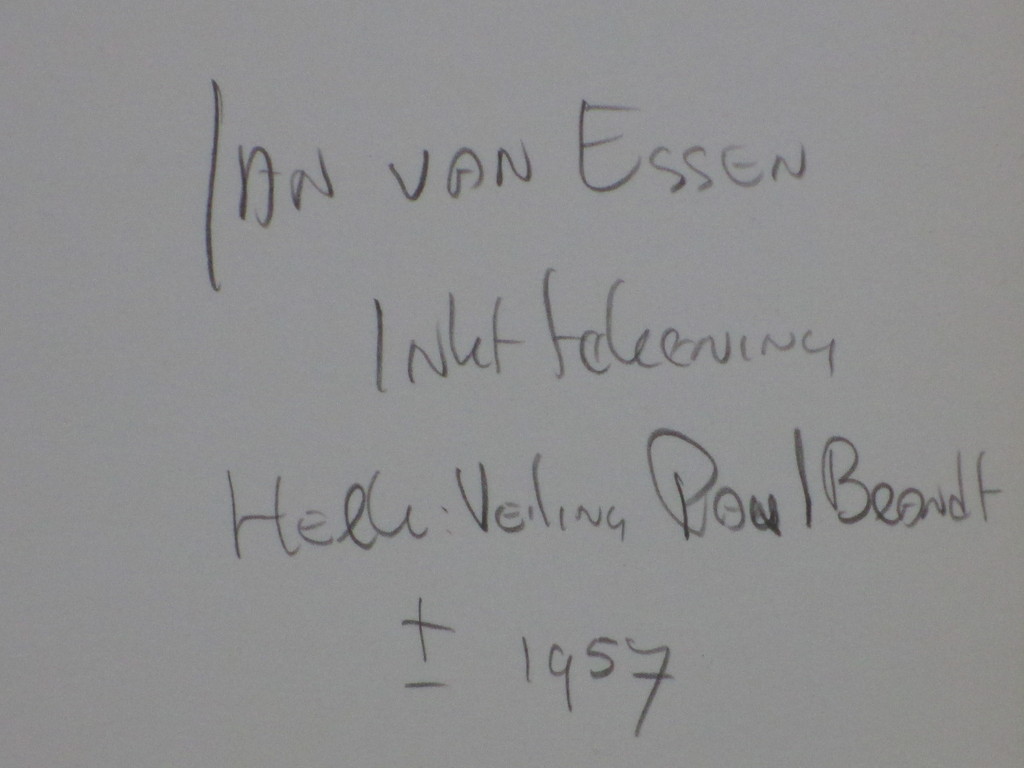 Jan van Essen
Inkt tekening
Herk: Veiling Paul Brandt
± 1957